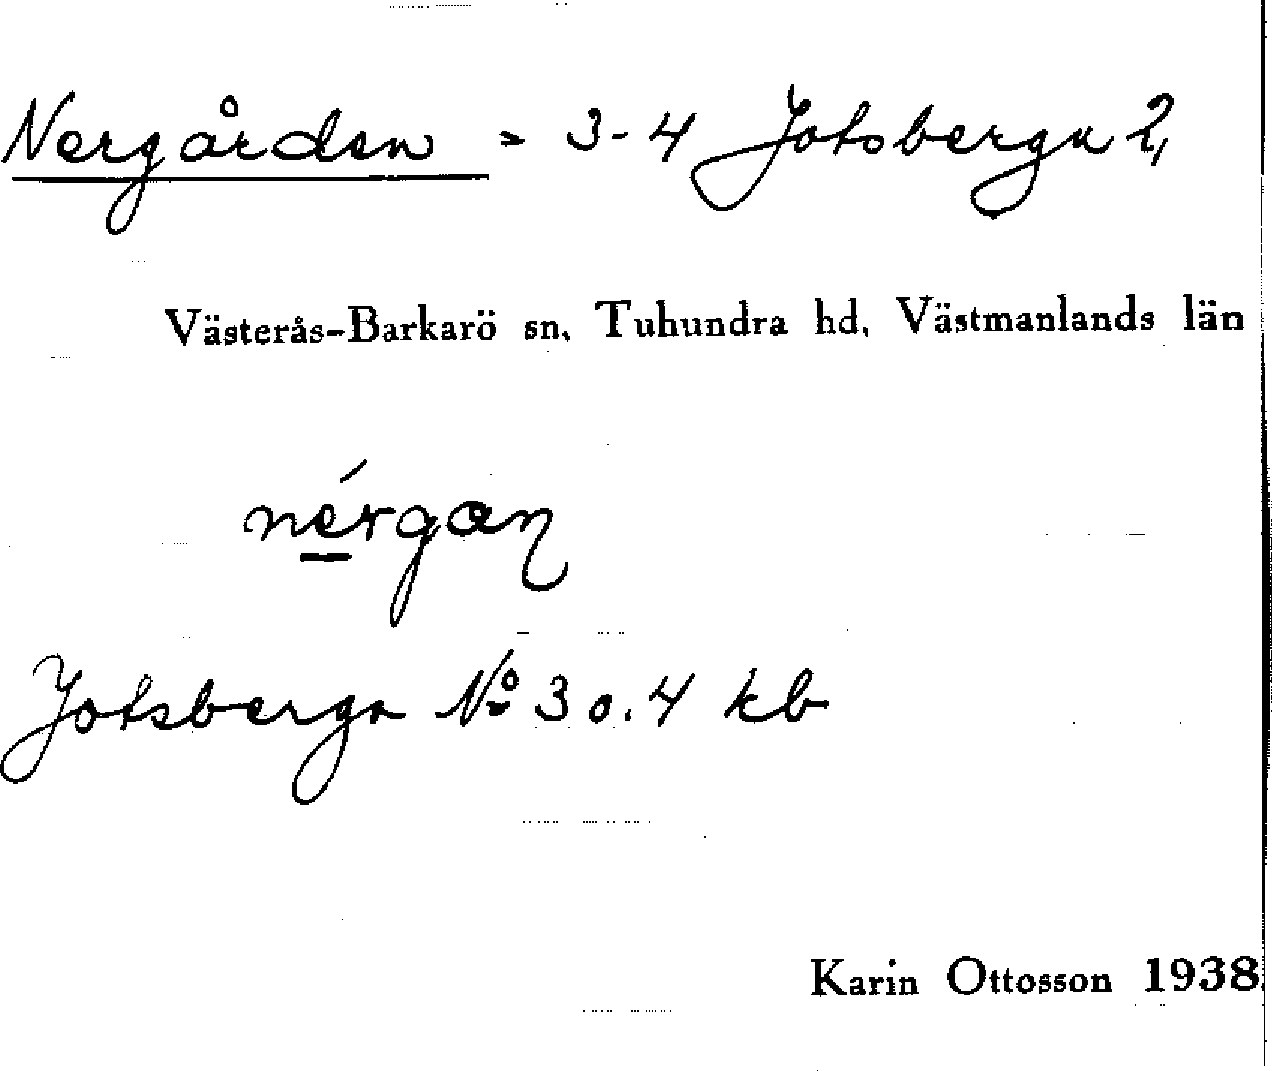 Nergården = 3-4 Jotsberga 2,
Västerås-Barkarö sn, Tuhundra hd, Västmanlands län
nérgan
Jotsberga No 3 o. 4 kb
Karin Ottosson 1938.